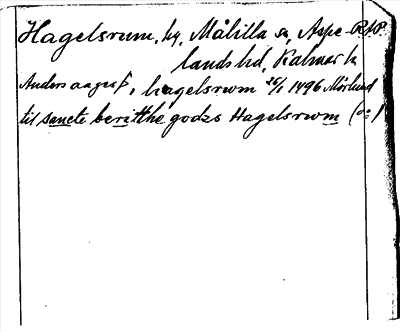 Hagelsrum, by, Målilla sn, Aspe- RAP.
lands hd, Kalmar l.
Anders aagesß, hagelsrwm 26/1 1496 Mörlund
til sancte beritthe godzs Hagelsrwm (oc)